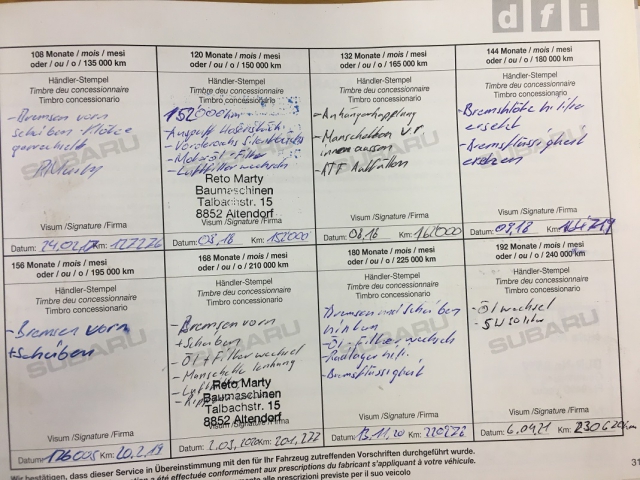 dfi
108 Monate / mois / mesi
oder / ou / o / 135 000 km
Händler-Stempel
Timbre du concessionnaire
Timbro concessionario
- Bremsen vorn
SUBARU
Visum /Signature /Firma
Datum: 24.02. Km: 127276
120 Monate / mois / mesi
oder / ou / o / 150 000 km
Händler-Stempel
Timbre du concessionnaire
Timbro concessionario
152000km
- Motoröl + Filter
- Luftfilter wechseln
Reto Marty
Baumaschinen
Talbachstr. 15
8852 Altendorf
Visum /Signature /Firma
Datum: 03.18 Km: 152000
132 Monate / mois / mesi
oder / ou / o / 165 000 km
Händler-Stempel
Timbre du concessionnaire
Timbro concessionario
- Anhängerkupplung
- Manschetten v.r.
innen aussen
- ATF Auffüllen
SUBARU
Visum /Signature /Firma
Datum: 08.18 Km: 162000
144 Monate / mois / mesi
oder / ou / o / 180 000 km
Händler-Stempel
Timbre du concessionnaire
Timbro concessionario
- Bremsklötze hi li re
ersetzt
- Bremsflüssigkeit
ersetzen
SUBARU
Visum /Signature /Firma
Datum: 09.18 Km:
156 Monate / mois / mesi
oder / ou / o / 195 000 km
Händler-Stempel
Timbre du concessionnaire
Timbro concessionario
- Bremsen vorn
+ Scheiben
SUBARU
Visum /Signature /Firma
Datum: 176005 Km: 20.2.19
168 Monate / mois / mesi
oder / ou / o / 210 000 km
Händler-Stempel
Timbre du concessionnaire
Timbro concessionario
- Bremsen vorn
+ Scheiben
- Öl + Filter wechsel
- Manschette lenkung
SUBARU
Reto Marty
Baumaschinen
Talbachstr. 15
8852 Altendorf
Visum /Signature /Firma
Datum: 2.03.2020 Km: 201,272
180 Monate / mois / mesi
oder / ou / o / 225 000 km
Händler-Stempel
Timbre du concessionnaire
Timbro concessionario
Bremsen und Scheiben
hinten
- Öl- Filter wechsel
- Radlager hi li
- Bremsflüssigkeit
SUBARU
Visum /Signature /Firma
Datum: 13.11.20 Km: 220276
192 Monate / mois / mesi
oder / ou / o / 240 000 km
Händler-Stempel
Timbre du concessionnaire
Timbro concessionario
- Öl wechsel
SUBARU
Visum /Signature /Firma
Datum: 6.04.21 Km: 230620km
31
Wir bestätigen, dass dieser Service in Übereinstimmung mit den für Ihr Fahrzeug zutreffenden Vorschriften durchgeführt wurde.
été effectuée conformément aux prescriptions du fabricant s'appliquant à votre véhicule.
alle prescrizioni previste per il suo veicolo